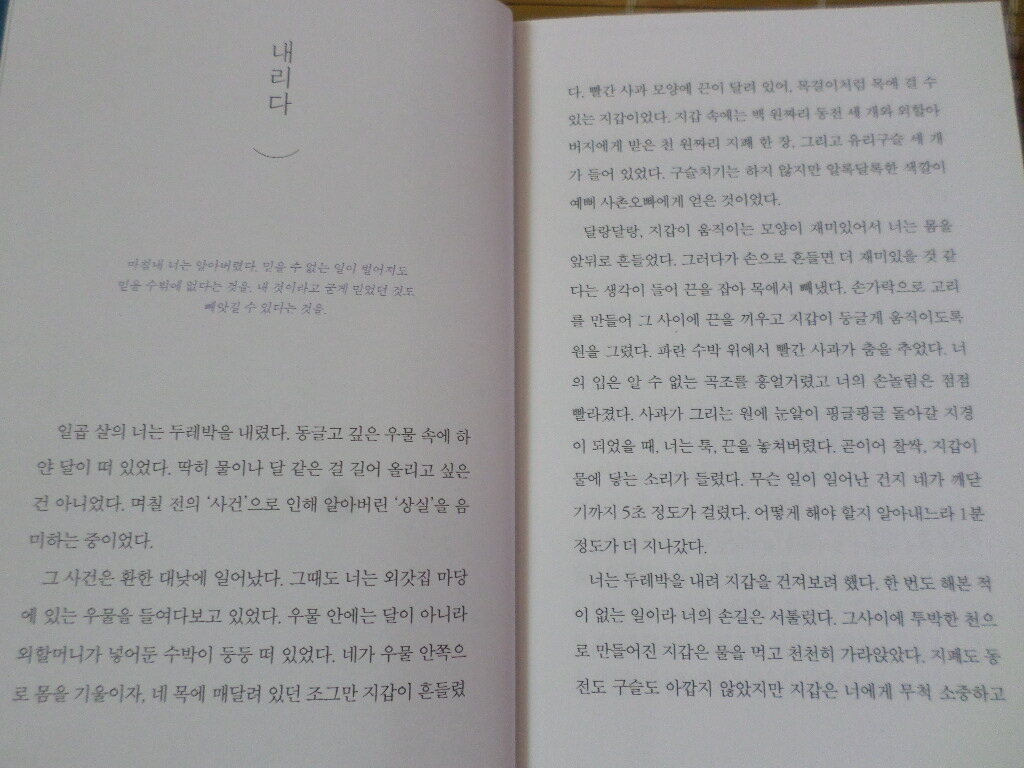 내리다
마침내 너는 알아버렸다. 믿을 수 없는 일이 벌어져도
믿을 수밖에 없다는 것을. 내 것이라고 굳게 믿었던 것도
빼앗길 수 있다는 것을.
일곱 살의 너는 두레박을 내렸다. 동글고 깊은 우물 속에 하
얀 달이 떠 있었다. 딱히 물이나 달 같은 걸 길어 올리고 싶은
건 아니었다. 며칠 전의 ‘사건’으로 인해 알아버린 ‘상실’을 음
미하는 중이었다.
그 사건은 환한 대낮에 일어났다. 그때도 너는 외갓집 마당
에 있는 우물을 들여다보고 있었다. 우물 안에는 달이 아니라
외할머니가 넣어둔 수박이 둥둥 떠 있었다. 네가 우물 안쪽으
로 몸을 기울이자, 네 목에 매달려 있던 조그만 지갑이 흔들렸
다. 빨간 사과 모양에 끈이 달려 있어, 목걸이처럼 목에 걸 수
있는 지갑이었다. 지갑 속에는 백 원짜리 동전 세 개와 외할아
버지에게 받은 천 원짜리 지폐 한 장, 그리고 유리구슬 세 개
가 들어 있었다. 구슬치기는 하지 않지만 알록달록한 색깔이
예뻐 사촌오빠에게 얻은 것이었다.
달랑달랑, 지갑이 움직이는 모양이 재미있어서 너는 몸을
앞뒤로 흔들었다. 그러다가 손으로 흔들면 더 재미있을 것 같
다는 생각이 들어 끈을 잡아 목에서 빼냈다. 손가락으로 고리
를 만들어 그 사이에 끈을 끼우고 지갑이 둥글게 움직이도록
원을 그렸다. 파란 수박 위에서 빨간 사과가 춤을 추었다. 너
의 입은 알 수 없는 곡조를 흥얼거렸고 너의 손놀림은 점점
빨라졌다. 사과가 그리는 원에 눈알이 핑글핑글 돌아갈 지경
이 되었을 때, 너는 툭, 끈을 놓쳐버렸다. 곧이어 찰싹, 지갑이
물에 닿는 소리가 들렸다. 무슨 일이 일어난 건지 네가 깨닫
기까지 5초 정도가 걸렸다. 어떻게 해야 할지 알아내느라 1분
정도가 더 지나갔다.
너는 두레박을 내려 지갑을 건져보려 했다. 한 번도 해본 적
이 없는 일이라 너의 손길은 서툴렀다. 그사이에 투박한 천으
로 만들어진 지갑은 물을 먹고 천천히 가라앉았다. 지폐도 동
전도 구슬도 아깝지 않았지만 지갑은 너에게 무척 소중하고